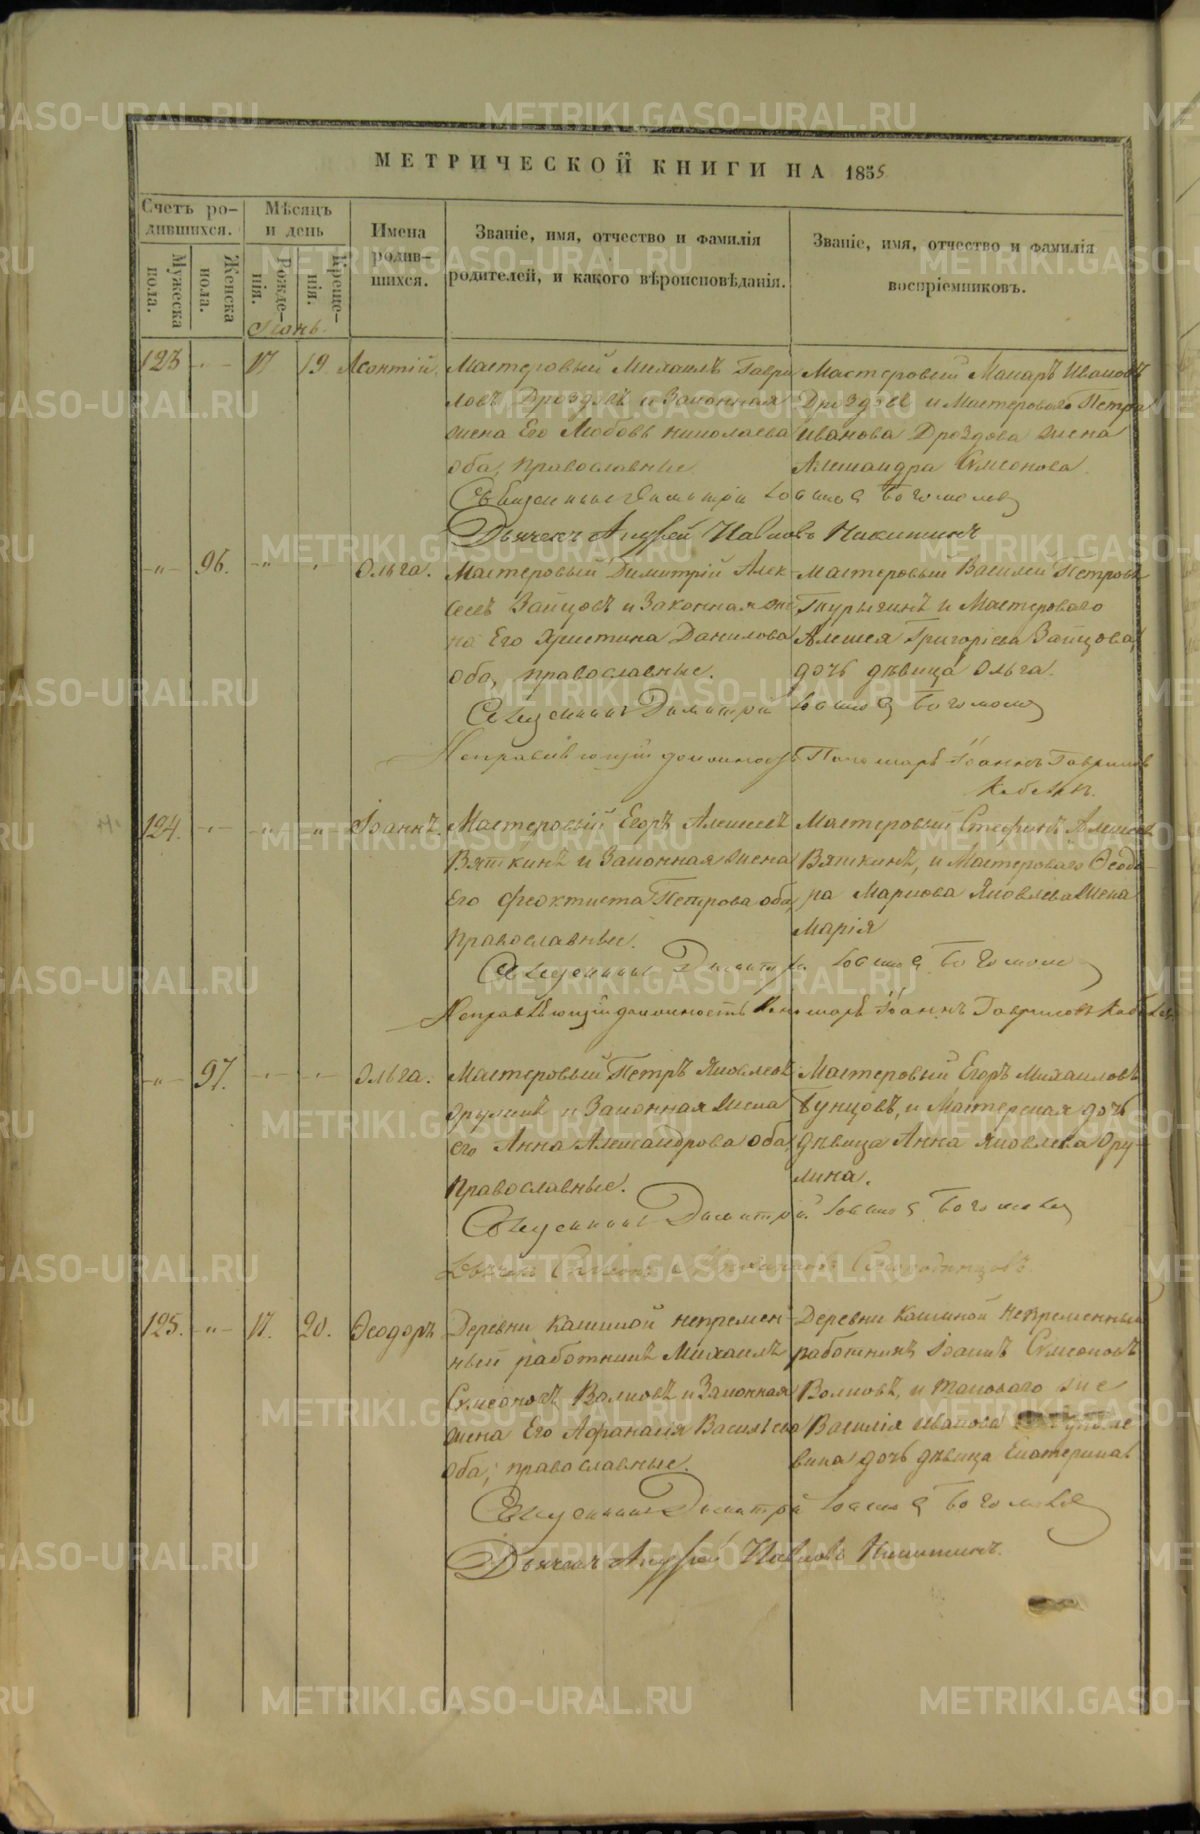 МЕТРИЧЕСКОЙ КНИГИ НА 1855
Счетъ ро-
дившихся.
Мѣсяцъ
и день
Имена
родив-
шихся.
Званіе, имя, отчество и фамилія
родителей, и какого вѣроисповѣданія.
Званіе, имя, отчество и фамилія
воспріемниковъ.
Мужеска
пола.
Женска
пола.
Рожде-
нія.
Креще-
нія.
Іюнь.
123 17 19 Леонтій. Мастеровый Михаилъ Гаври Мастеровый Макаръ Ивановъ
ловъ Дроздовъ и Законная Дроздовъ и Мастероваго Петра
жена Его Любовь Николаева Иванова Дроздова жена
оба, православные Александра Симеонова
Священникъ Димитрій Богомолов
Дьячекъ Андрей Павловъ Никитинъ
-"- 96. -"- Ольга. Мастеровый Димитрій Алек- Мастеровый Василей Петровъ
сеевъ Зайцовъ и Законная же Турыгинъ и Мастероваго
на Его Христина Данилова Алексея Григоріева Зайцова
оба, православные. дочь дѣвица Ольга.
Священникъ Димитрій Богомолов
Исправляющій должность Пономарь Іоаннъ Гаврилов
124. Іоаннъ. Мастеровый Егоръ Алексеевъ Мастеровый Стефанъ Алексеев
Вяткинъ и Законная жена Вяткинъ, и Мастероваго Ѳеодо-
Его Феоктиста Петрова оба, ра Маркова Яковлева жена
православные. Марія
Священникъ Димитрій Богомолов
Исправляющій должность Пономарь Іоаннъ Гавриловъ
-"- 97. Ольга. Мастеровый Петръ Яковлевъ Мастеровый Егоръ Михаиловъ
и Законная жена Бунцовъ, и Мастерская дочь
его Анна Александрова оба, дѣвица Анна Яковлева
Православные.
Священникъ Димитрій Богомолов
Дьячекъ Слободинцовъ
125. -"- 17. 20. Ѳеодоръ Деревни Кашиной непремен- Деревни Кашиной Непременный
ный работникъ Михаилъ работникъ Іоаннъ Симеоновъ
Симеоновъ Волковъ и Законная Волковъ, и таковаго же
жена Его Афанасія Васильева Василія Иванова
оба, православные. вина дочь дѣвица Екатерина
Священникъ Димитрій Богомолов
Дьячекъ Андрей Павловъ Никитинъ.
METRIKI.GASO-URAL.RU